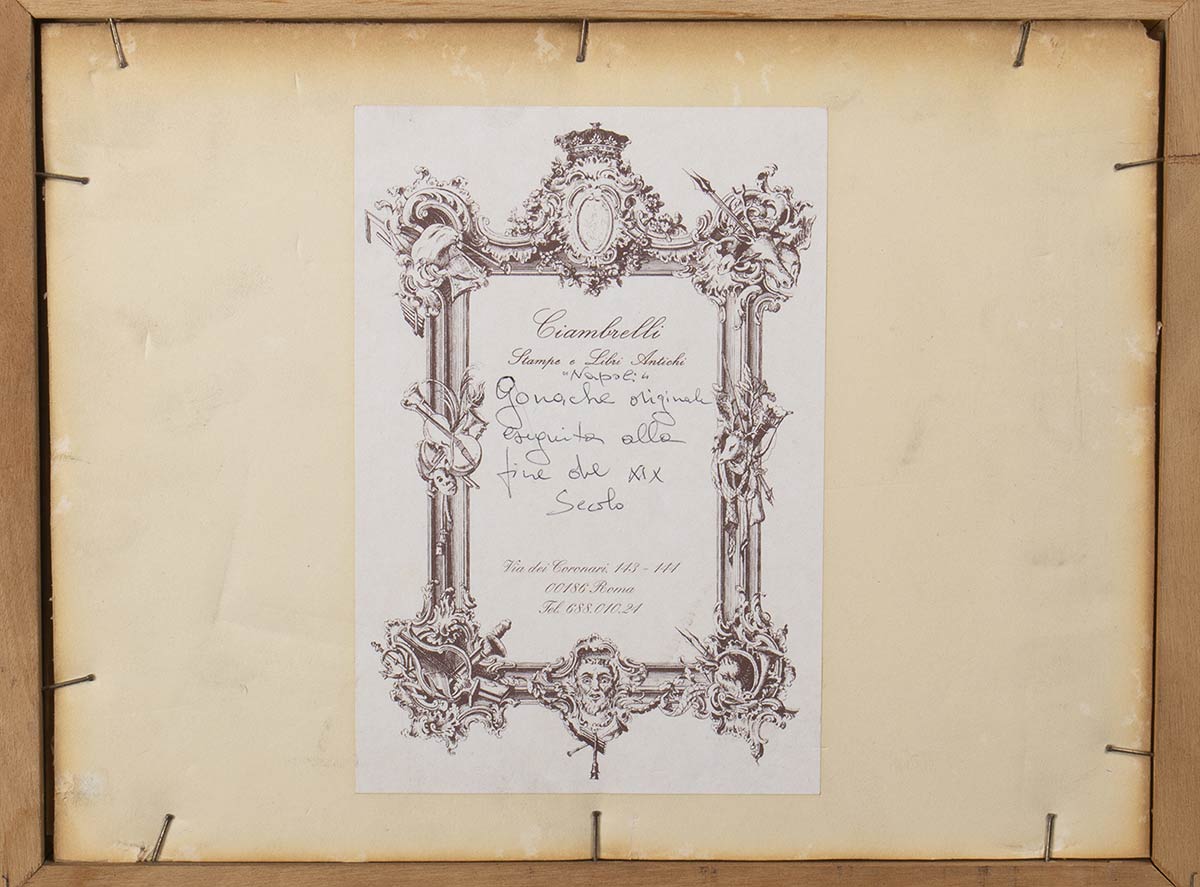 Ciambrelli
Stampe e Libri Antichi
"Napoli"
Gouache originale
eseguita alla
fine del XIX
Secolo
Via dei Coronari, 143 - 144
00186 Roma
Tel. 688.010.24